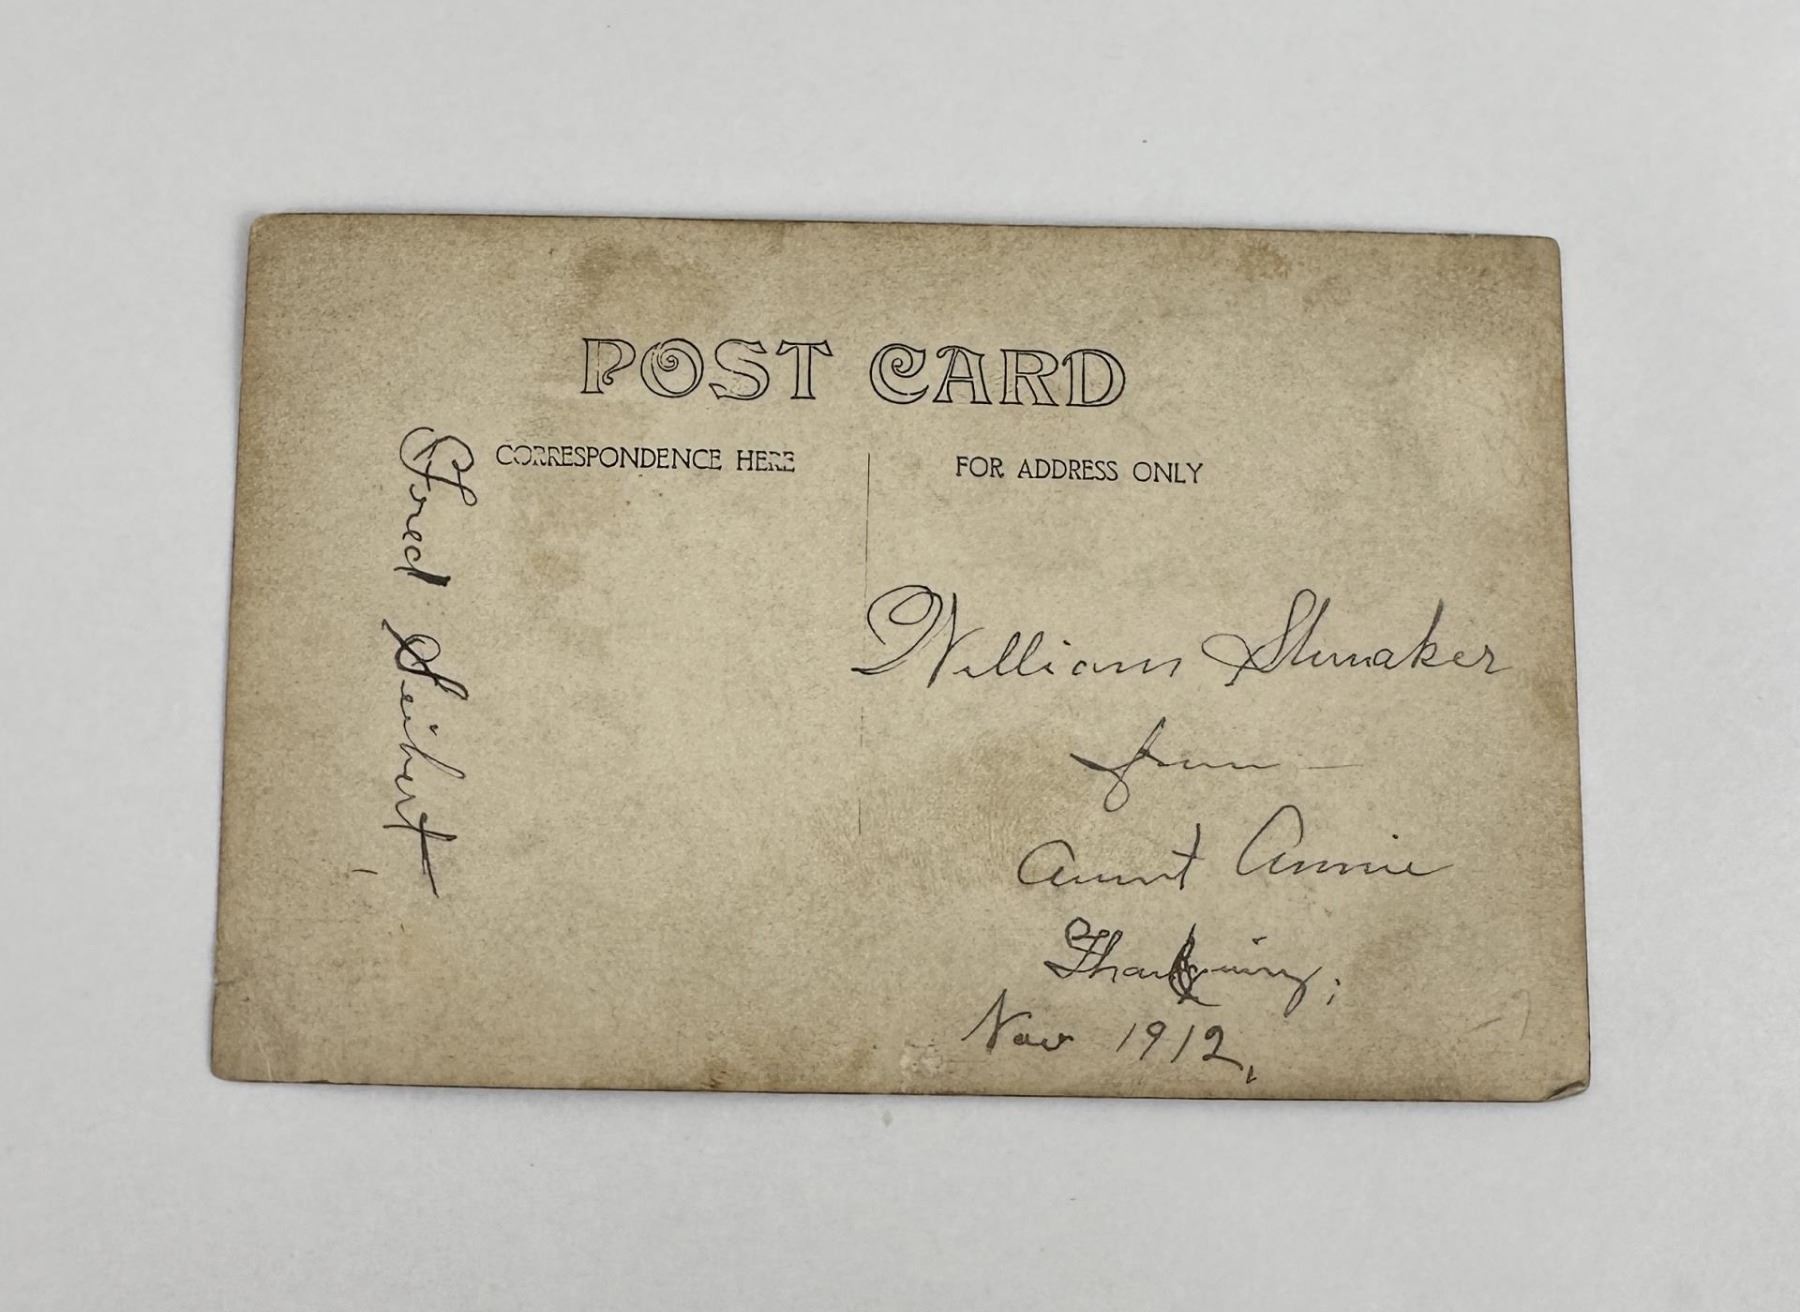 POST CARD
CORRESPONDENCE HERE
FOR ADDRESS ONLY
Fred Seibert
William Shumaker
from —
Aunt Annie
Thanksgiving;
Nov 1912,